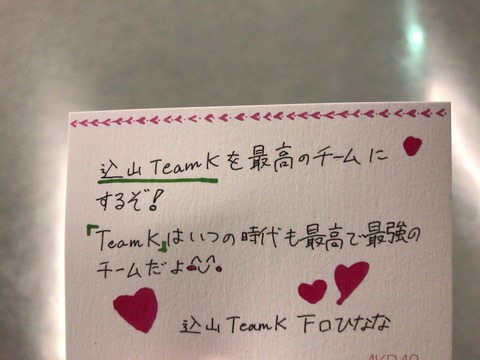 込山TeamKを最高のチームに
するぞ!
「TeamK」はいつの時代も最高で最強の
チームだよ
込山TeamK 下口ひなな